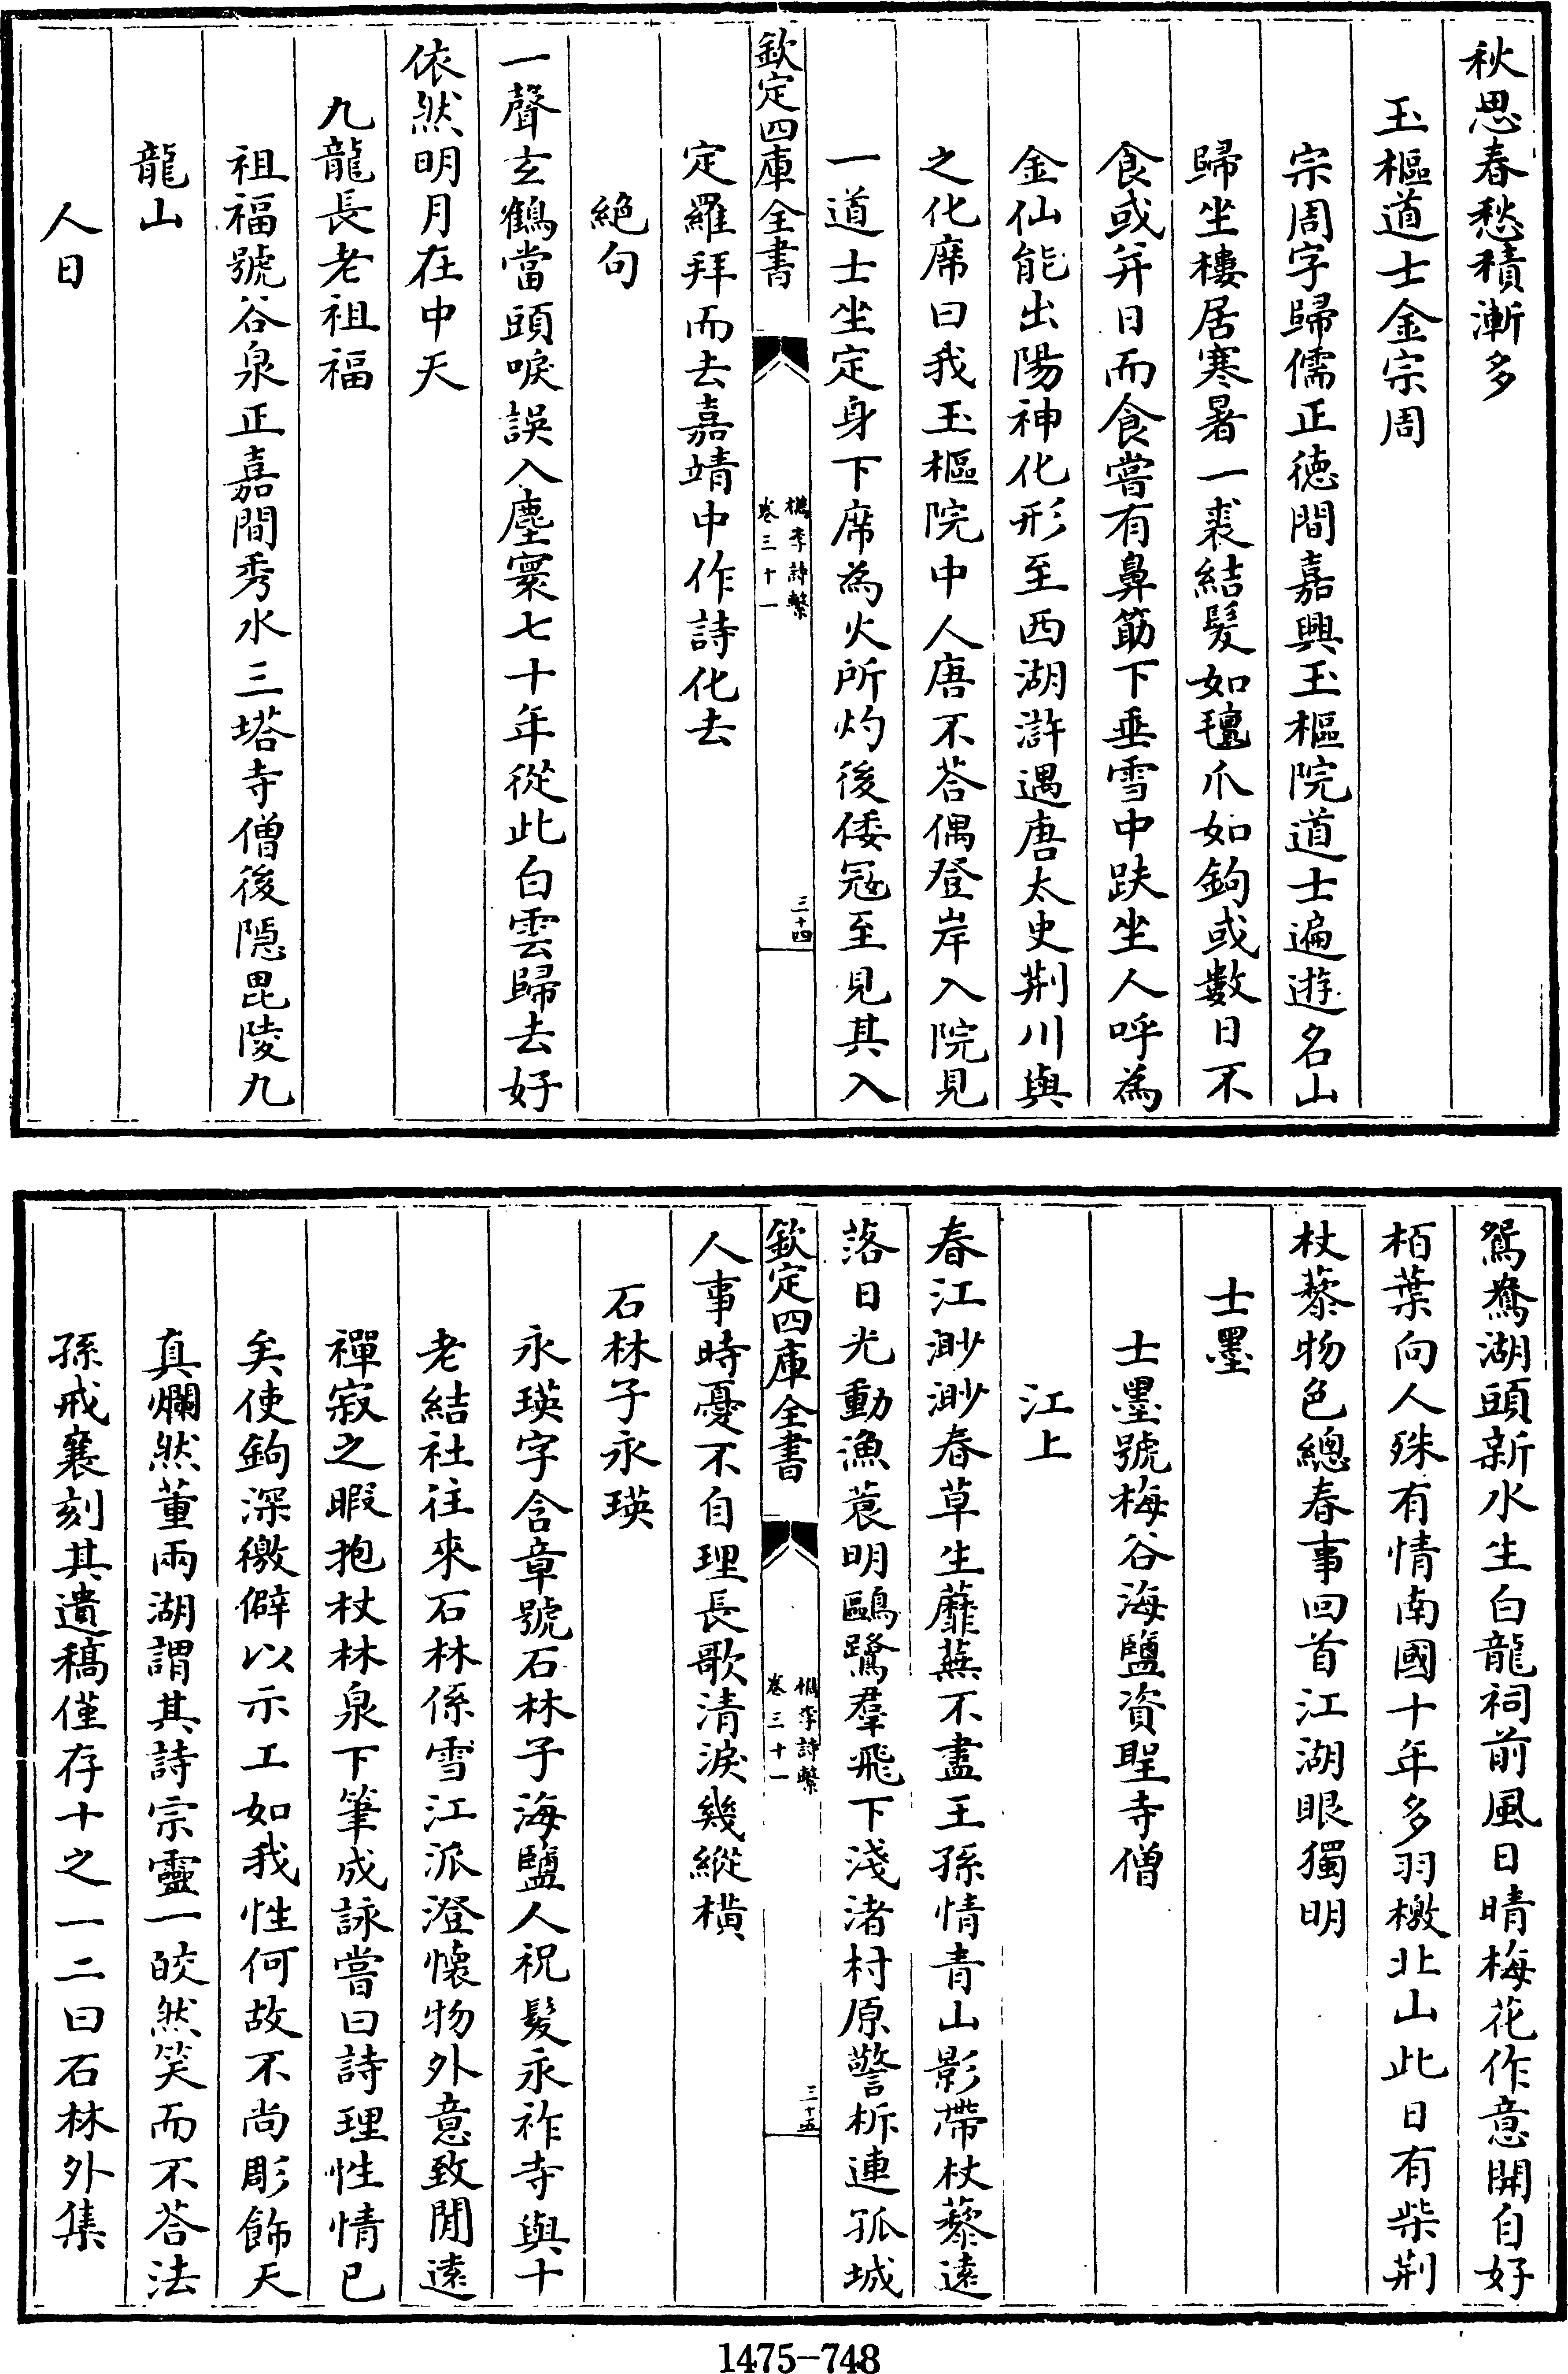 秋思春愁積漸多
玉樞道士金宗周
宗周字歸儒正徳間嘉興玉樞院道士遍遊名山
歸坐樓居寒暑一裘結髮如氊爪如鉤或數日不
食或并日而食嘗有鼻筯下垂雪中趺坐人呼為
金仙能出陽神化形至西湖滸遇唐太史荆川與
之化席曰我玉樞院中人唐不荅偶登岸入院見
一道士坐定身下席為火所灼後倭冦至見其入
定羅拜而去嘉靖中作詩化去
絶句
一聲玄鶴當頭唳誤入塵寰七十年從此白雲歸去好
依然明月在中天
九龍長老祖福
祖福號谷泉正嘉間秀水三塔寺僧後隠毘陵九
龍山
人日
欽定四庫全書
檇李詩繫
卷三十一
三十四
鴛鴦湖頭新水生白龍祠前風日晴梅花作意開自好
栢葉向人殊有情南國十年多羽檄北山此日有柴荆
杖藜物色總春事回首江湖眼獨明
士墨
士墨號梅谷海鹽資聖寺僧
江上
春江渺渺春草生蘼蕪不盡王孫情青山影帶杖藜逺
落日光動漁蓑明鷗鷺羣飛下淺渚村原警柝連孤城
人事時憂不自理長歌清淚幾縱橫
石林子永瑛
永瑛字含章號石林子海鹽人祝髮永祚寺與十
老結社往來石林係雪江派澄懐物外意致閒逺
禪寂之暇抱杖林泉下筆成詠嘗曰詩理性情已
矣使鉤深繳僻以示工如我性何故不尚彫飾天
真爛然董兩湖謂其詩宗靈一皎然笑而不荅法
孫戒襄刻其遺稿僅存十之一二曰石林外集
欽定四庫全書
檇李詩繫
卷三十一
三十五
1475-748